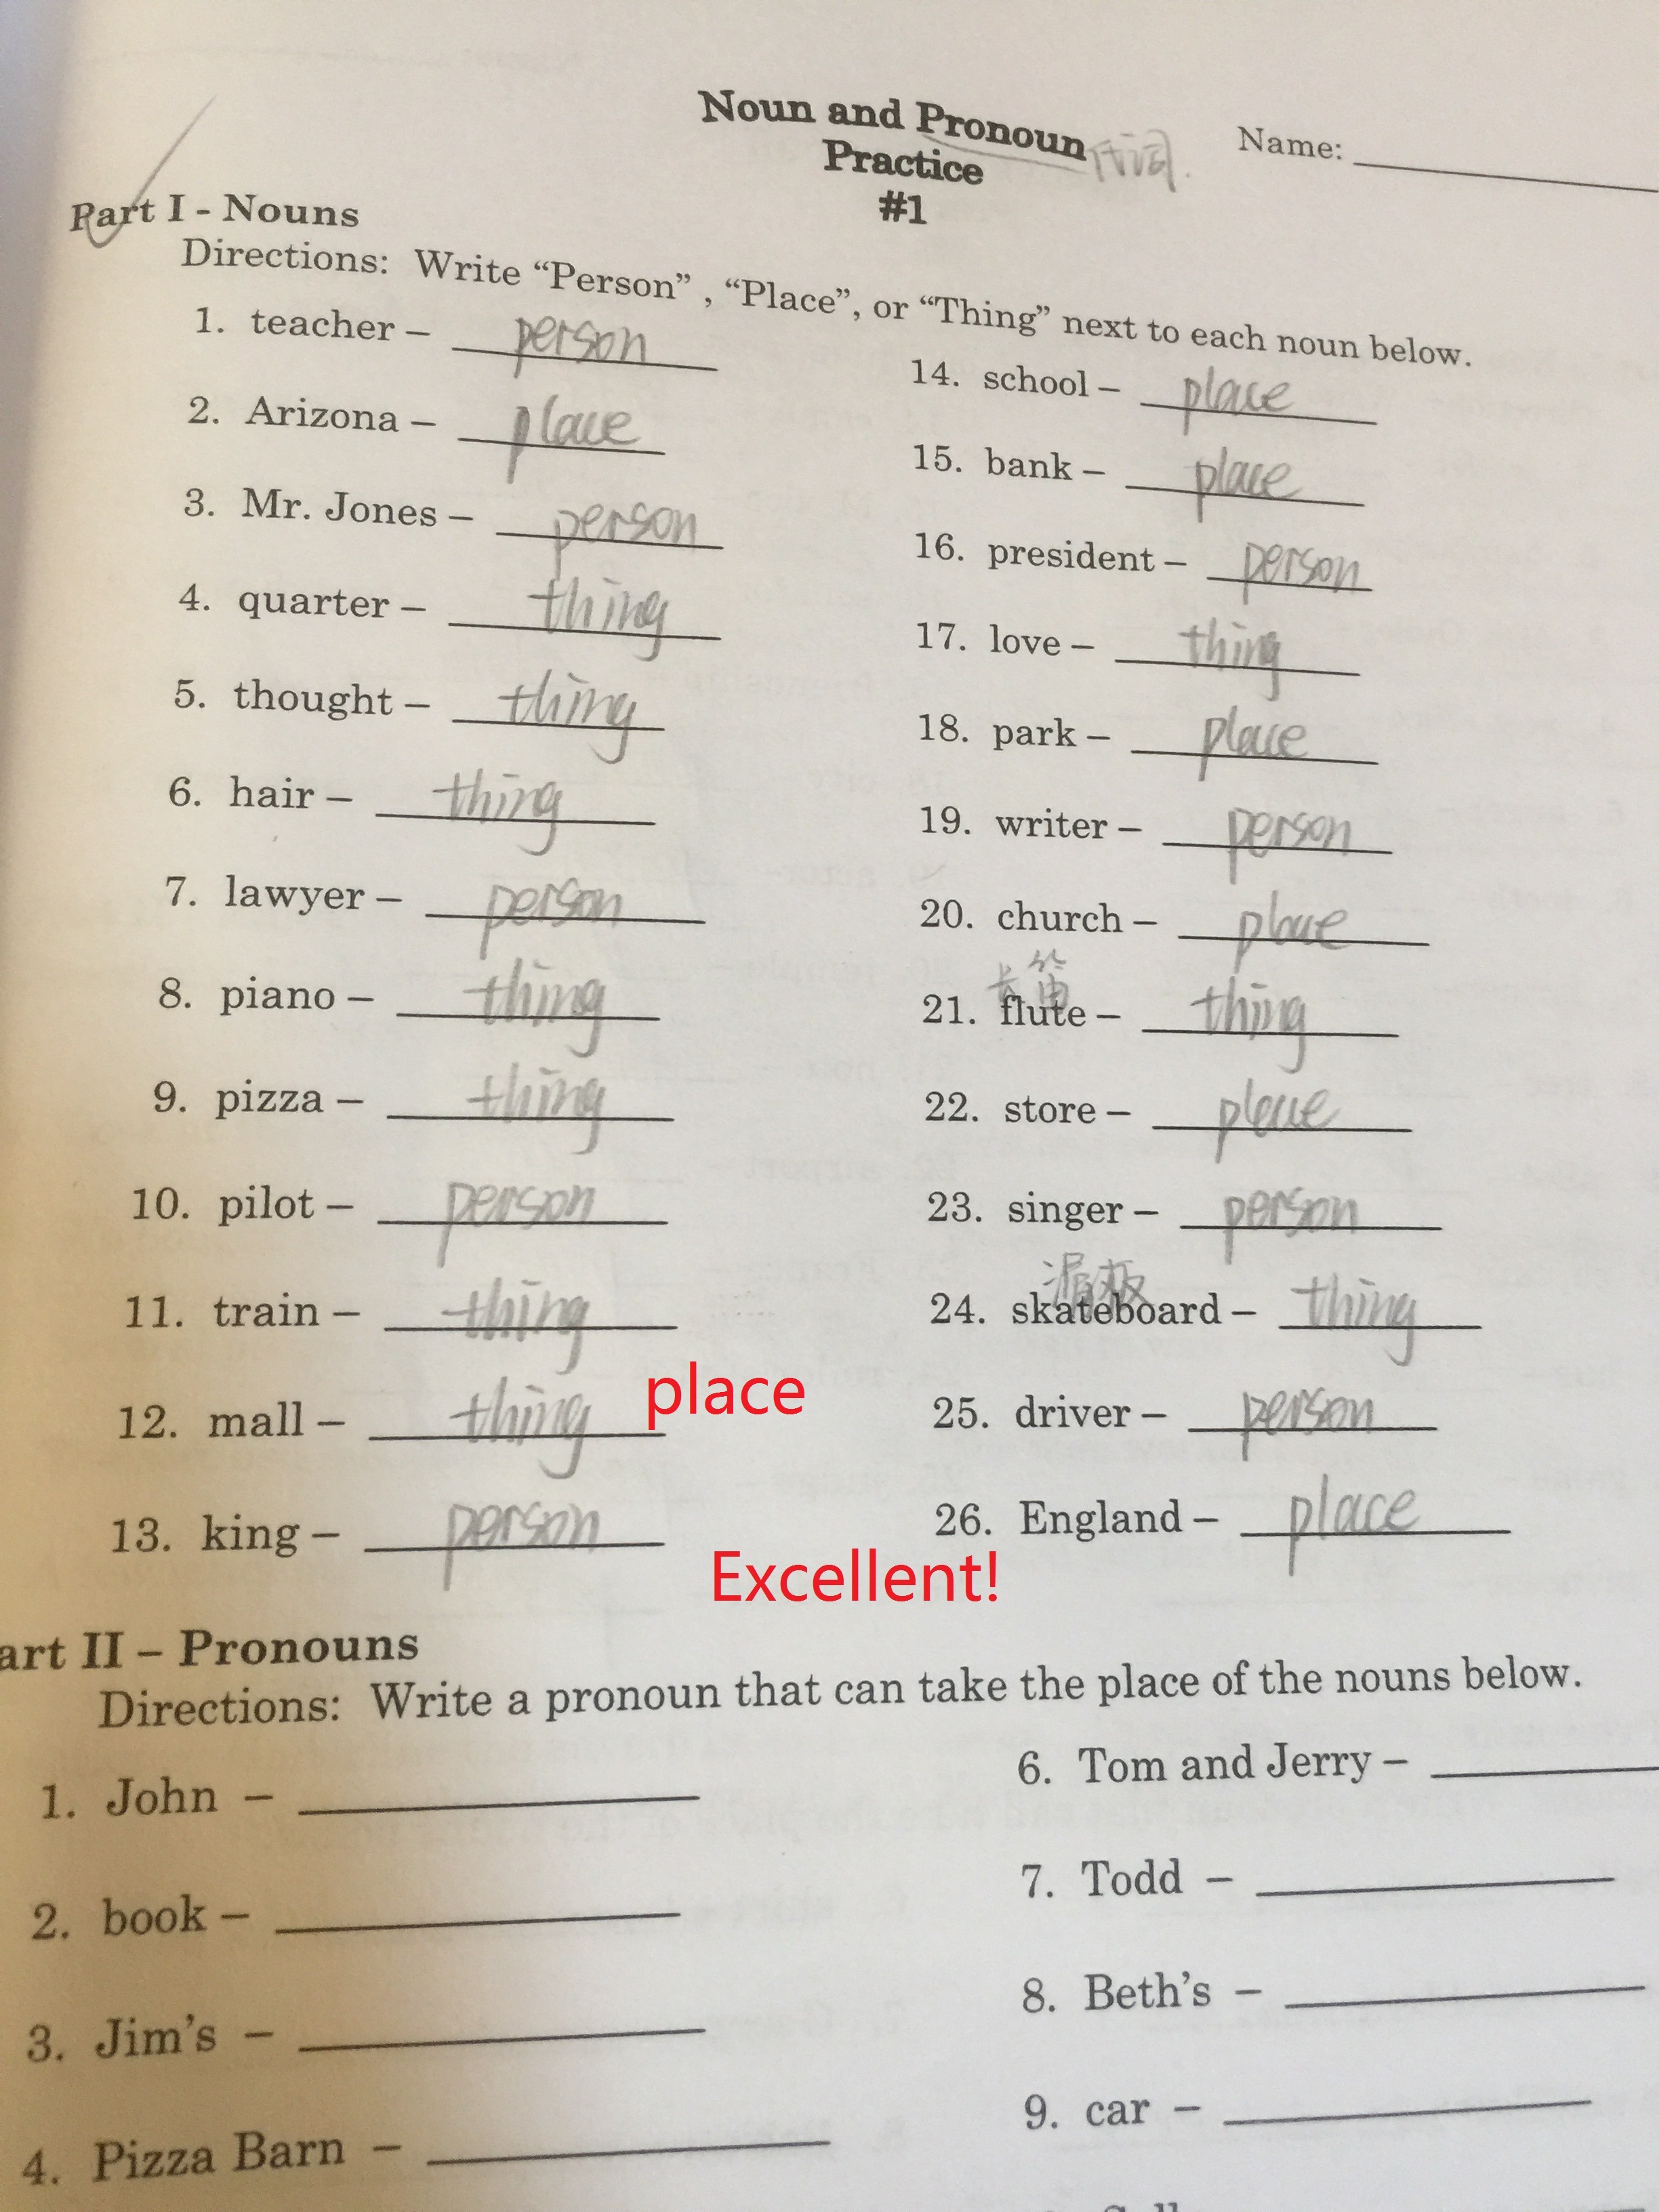 Noun and Pronoun 代词.
Practice
#1
Name:
Part I - Nouns
Directions: Write “Person” , “Place”, or “Thing” next to each noun below.
1. teacher – person
2. Arizona – place
3. Mr. Jones – person
4. quarter – thing
5. thought – thing
6. hair – thing
7. lawyer – person
8. piano – thing
9. pizza – thing
10. pilot – person
11. train – thing
12. mall – thing place
13. king – person
14. school – place
15. bank – place
16. president – person
17. love – thing
18. park – place
19. writer – person
20. church – place
长笛
21. flute – thing
22. store – place
23. singer – person
滑板
24. skateboard – thing
25. driver – person
26. England – place
Excellent!
art II – Pronouns
Directions: Write a pronoun that can take the place of the nouns below.
1. John –
2. book –
3. Jim’s –
4. Pizza Barn –
6. Tom and Jerry –
7. Todd –
8. Beth’s –
9. car –